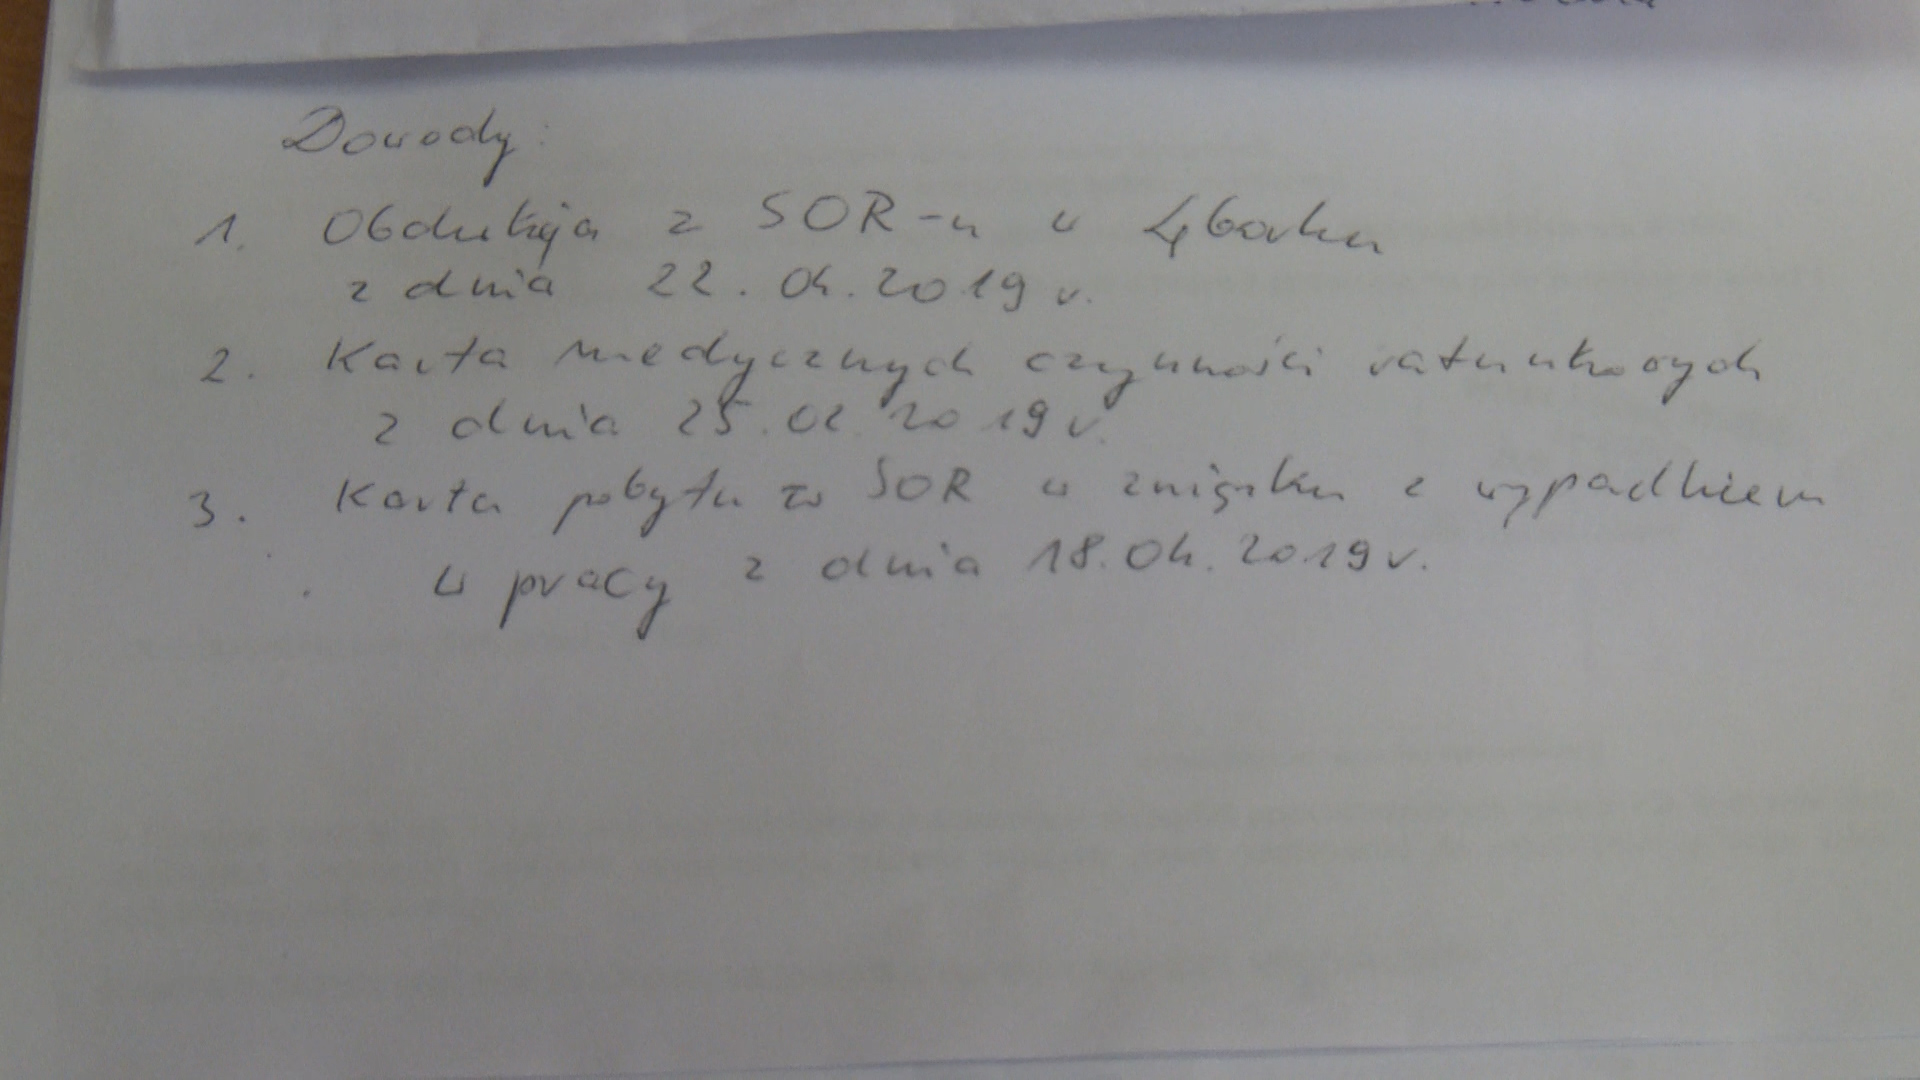 Dowody:
1. Obdukcja z SOR-u w Lęborku
z dnia 22.04.2019 r.
2. Karta medycznych czynności ratunkowych
z dnia 25.02.2019 r.
3. Karta pobytu w SOR w związku z wypadkiem
w pracy z dnia 18.04.2019 r.